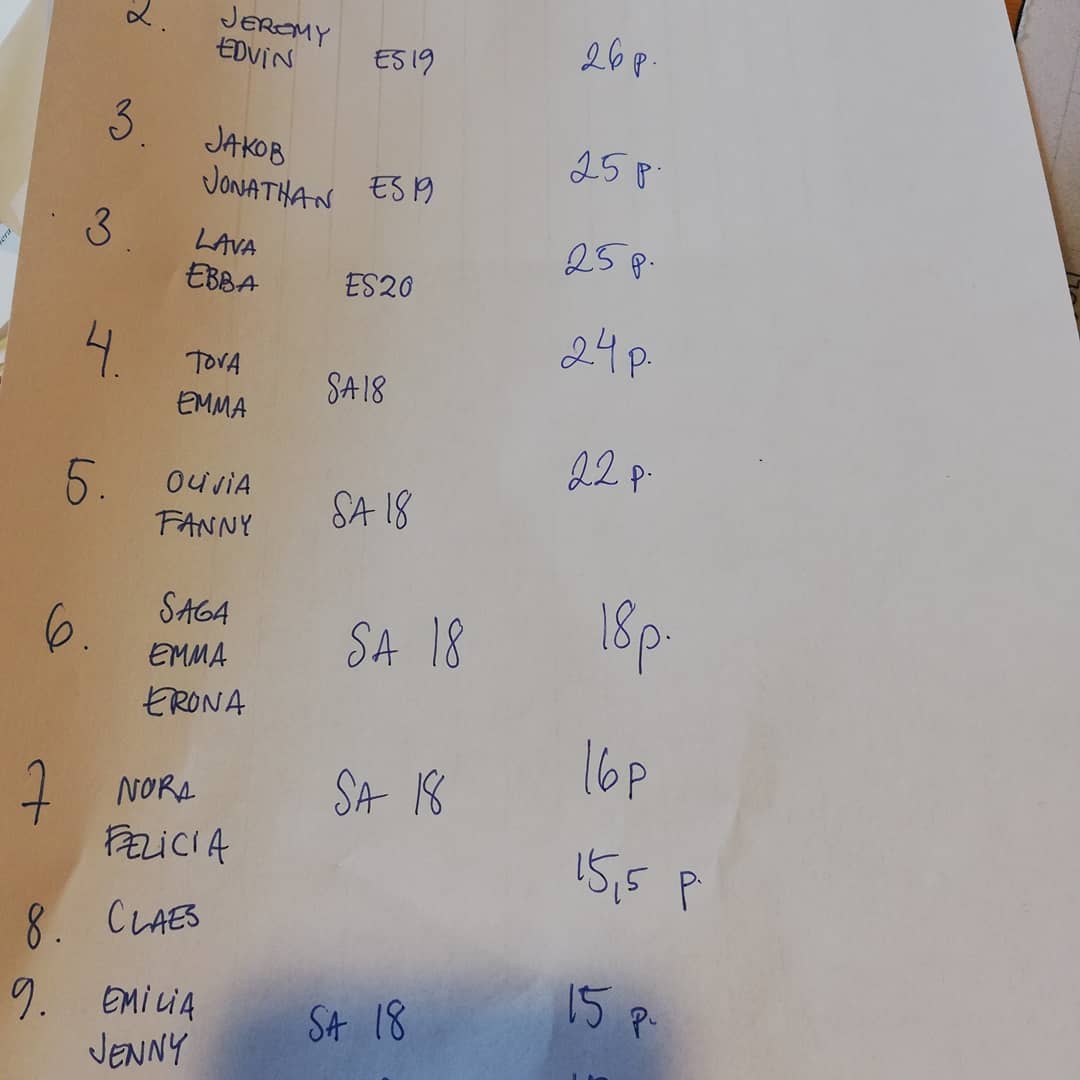 2. JEREMY
EDVIN ES19 26 p.
3. JAKOB
JONATHAN ES19 25 p.
3. LAVA
EBBA ES20 25 p.
4. TOVA
EMMA SA18 24 p.
5. OLIVIA
FANNY SA 18 22 p.
6. SAGA
EMMA SA 18 18p.
ERONA
7 NORA SA 18 16p
FELICIA
8. CLAES 15,5 p.
9. EMILIA
JENNY SA 18 15 p.